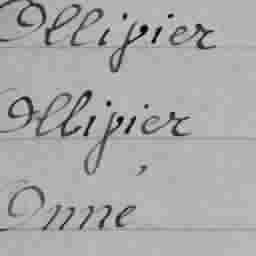 Ollivier
Ollivier
Onné